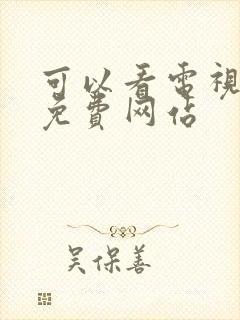 可以看電視
免費网佔
吴保善